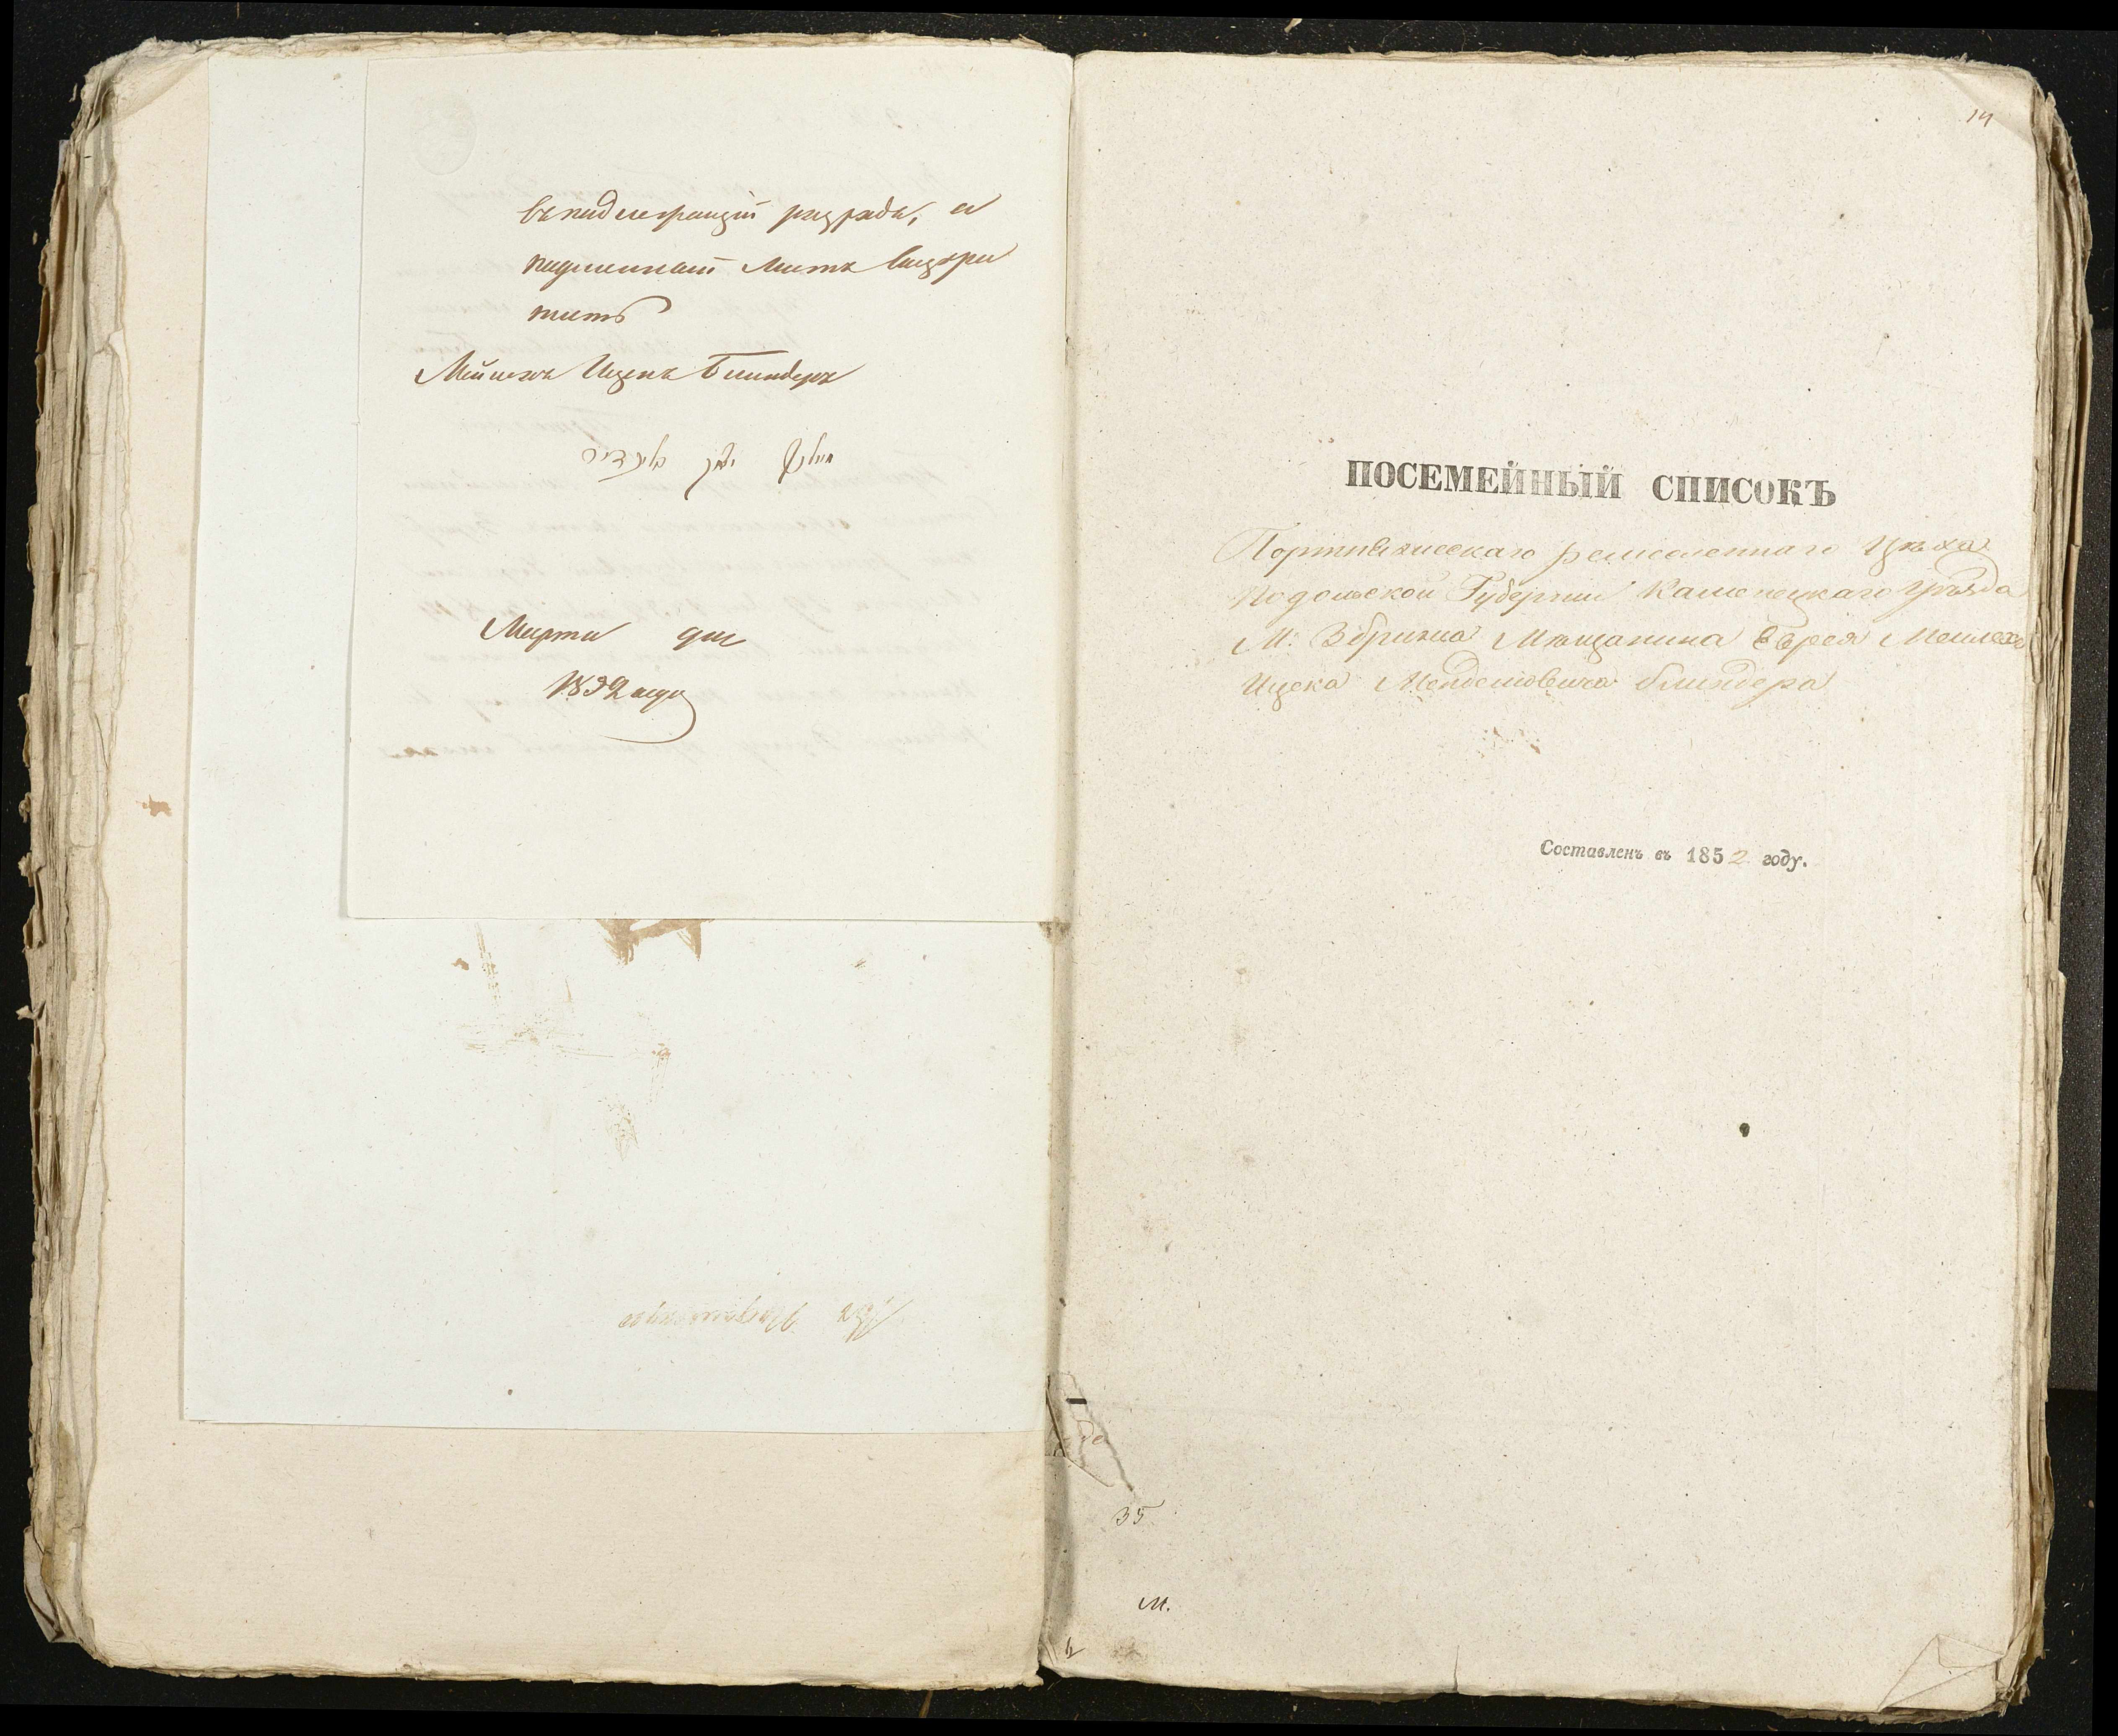 въ надлежащій разрядъ, а
подленный листъ возвра
тить
Мейлехъ Ицекъ Блиндеръ
מיילעך יצחק בלינדער
Марта дня
1852 года
14
ПОСЕМЕЙНЫЙ СПИСОКЪ
Портняжескаго ремесленнаго Цѣха
Подольской Губерніи Каменецкаго Уѣзда
М. Збрижа Мѣщанина Еврея Мейлеха
Ицека Менделевича Блиндера
Составленъ въ 1852 году.
35
М.